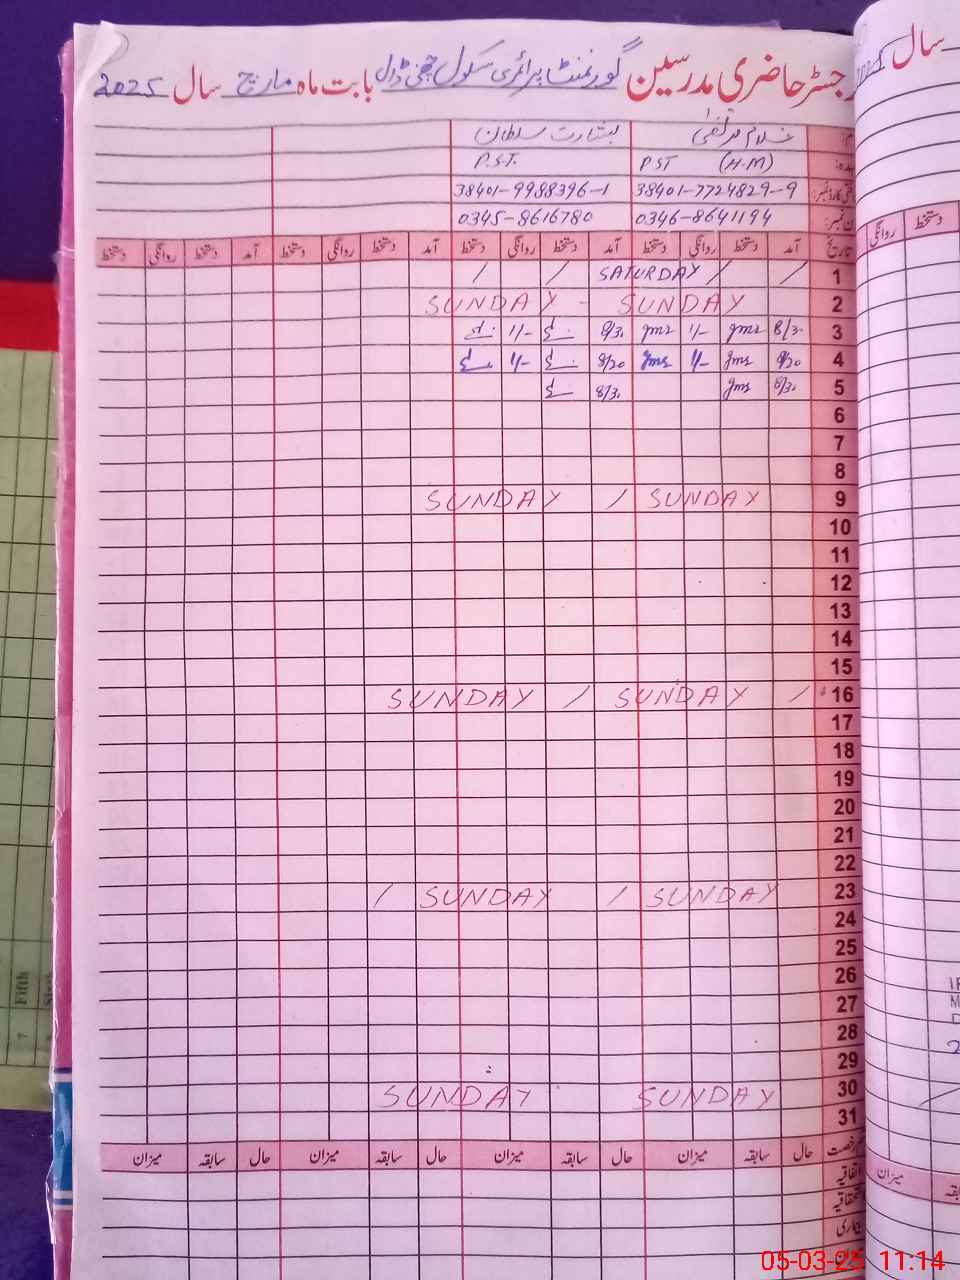 رجسٹر حاضری مدرسین گورنمنٹ پرائمری سکول چھنی ڈال بابت ماہ مارچ سال 2025
غلام مرتضیٰ بشارت سلطان
PST (H.M) P.S.T.
38401-7724829-9 38401-9988396-1
0346-8641194 0345-8616780
تاریخ آمد دستخط روانگی دستخط آمد دستخط روانگی دستخط آمد دستخط روانگی دستخط آمد دستخط روانگی دستخط
1 / / SATURDAY / /
2 SUNDAY - SUNDAY
3 8/30 gms 1/- gms 8/30 1/-
4 8/20 gms 1/- gms 8/20 1/-
5 8/30 gms 8/30
6
7
8
9 SUNDAY / SUNDAY
10
11
12
13
14
15
16 / SUNDAY / SUNDAY
17
18
19
20
21
22
23 SUNDAY / SUNDAY /
24
25
26
27
28
29
30 SUNDAY SUNDAY
31
حال سابقہ میزان حال سابقہ میزان حال سابقہ میزان حال سابقہ میزان
اتفاقیہ
بیماری
سال
روانگی دستخط
میزان
7 Fifth
05-03-25 11:14